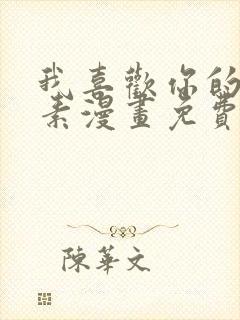 我喜歡你的
素漫畫免費
陳華文